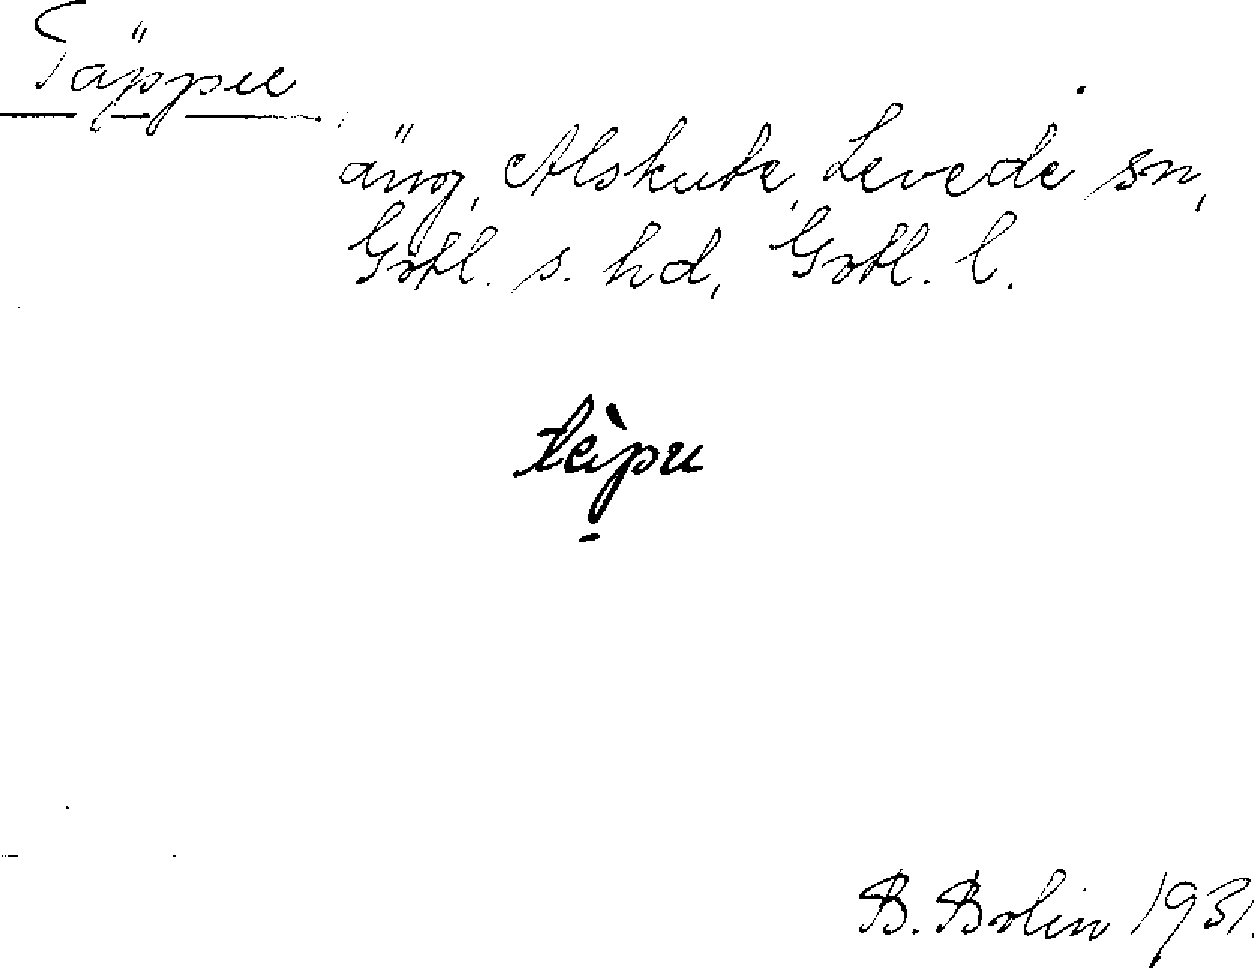 Täppu
äng, Alskute, Levede sn,
Gotl. s. hd, Gotl. l.
tèpu
B. Bolin 1931.